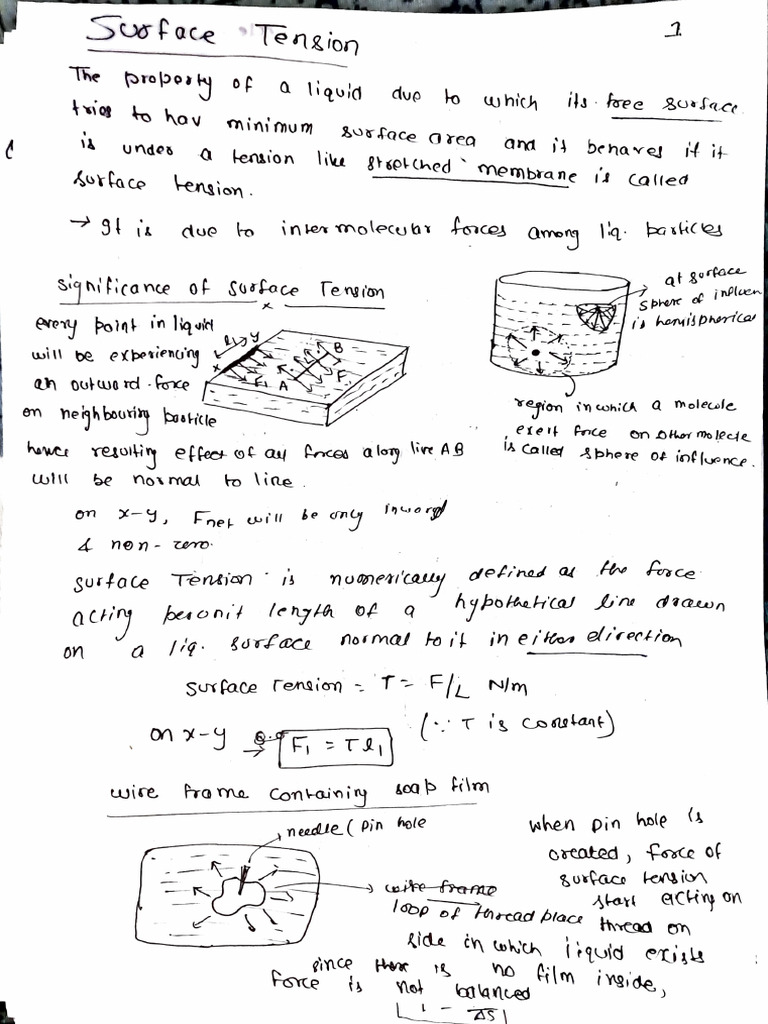 Surface Tension
1
The property of a liquid due to which its free surface
tries to hav minimum surface area and it behaves if it
is under a tension like stretched membrane is called
surface tension.
→ It is due to intermolecular forces among liq. particles
significance of surface Tension
every point in liquid
will be experiencing
an outward force
on neighbouring particle
hence resulting effect of all forces along line AB
will be normal to line.
x
y
x
F1
A
B
F
at surface
sphere of influen
is hemispherical
region in which a molecule
exert force on other molecle
is called sphere of influence.
on x-y, Fnet will be only inward
& non-zero.
surface Tension is numerically defined as the force
acting per unit length of a hypothetical line drawn
on a liq. surface normal to it in either direction
surface Tension = T = F/L N/m
on x-y → F1 = T l1 (∵ T is constant)
wire frame containing soap film
needle (pin hole
wire frame
loop of thread place
when pin hole is
created, force of
surface tension
start acting on
thread on
side in which liquid exists
since there is no film inside,
force is not balanced